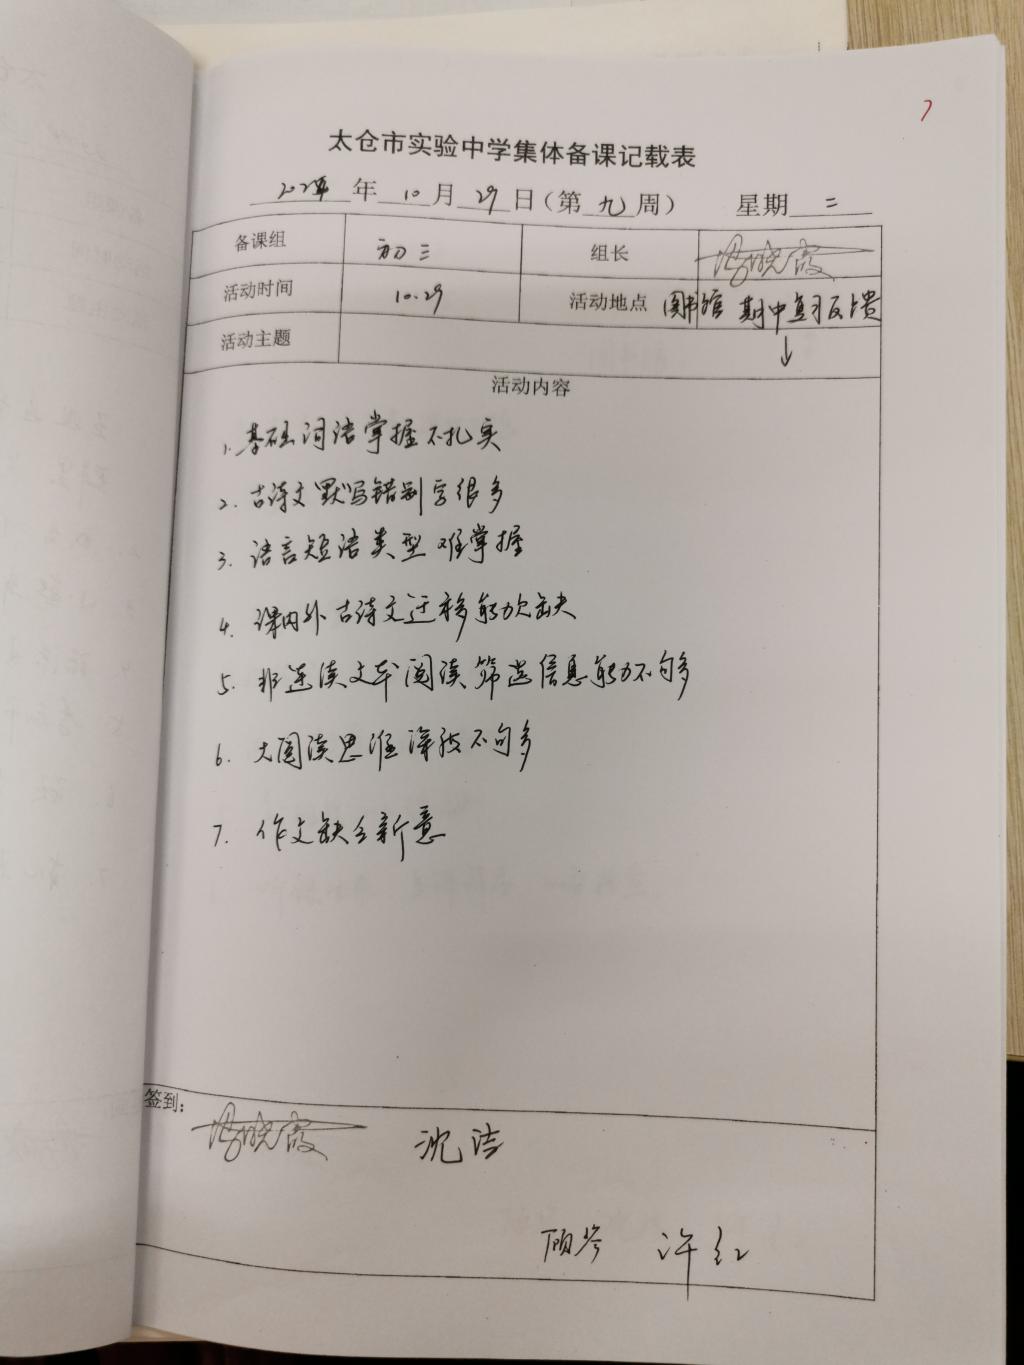 7
太仓市实验中学集体备课记载表
2024年 年 10 月 29 日（第 九 周） 星期 二
备课组 初三 组长
活动时间 10.29 活动地点 图书馆 期中复习反馈
活动主题 ↓
活动内容
1. 基础词语掌握不扎实
2. 古诗文默写错别字很多
3. 语言短语类型难掌握
4. 课内外古诗文迁移能力欠缺
5. 非连续文本阅读筛选信息能力不够
6. 大阅读思维深度不够
7. 作文缺乏新意
签到:
沈洁
顾岑 许红